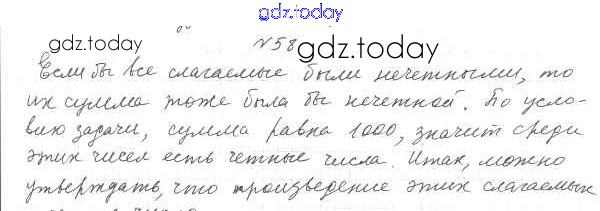 gdz.today
№58
gdz.today
gdz.today
Если бы все слагаемые были нечетными, то
их сумма тоже была бы нечетной. По усло-
вию задачи, сумма равна 1000, значит среди
этих чисел есть четные числа. Итак, можно
утверждать, что произведение этих слагаемых